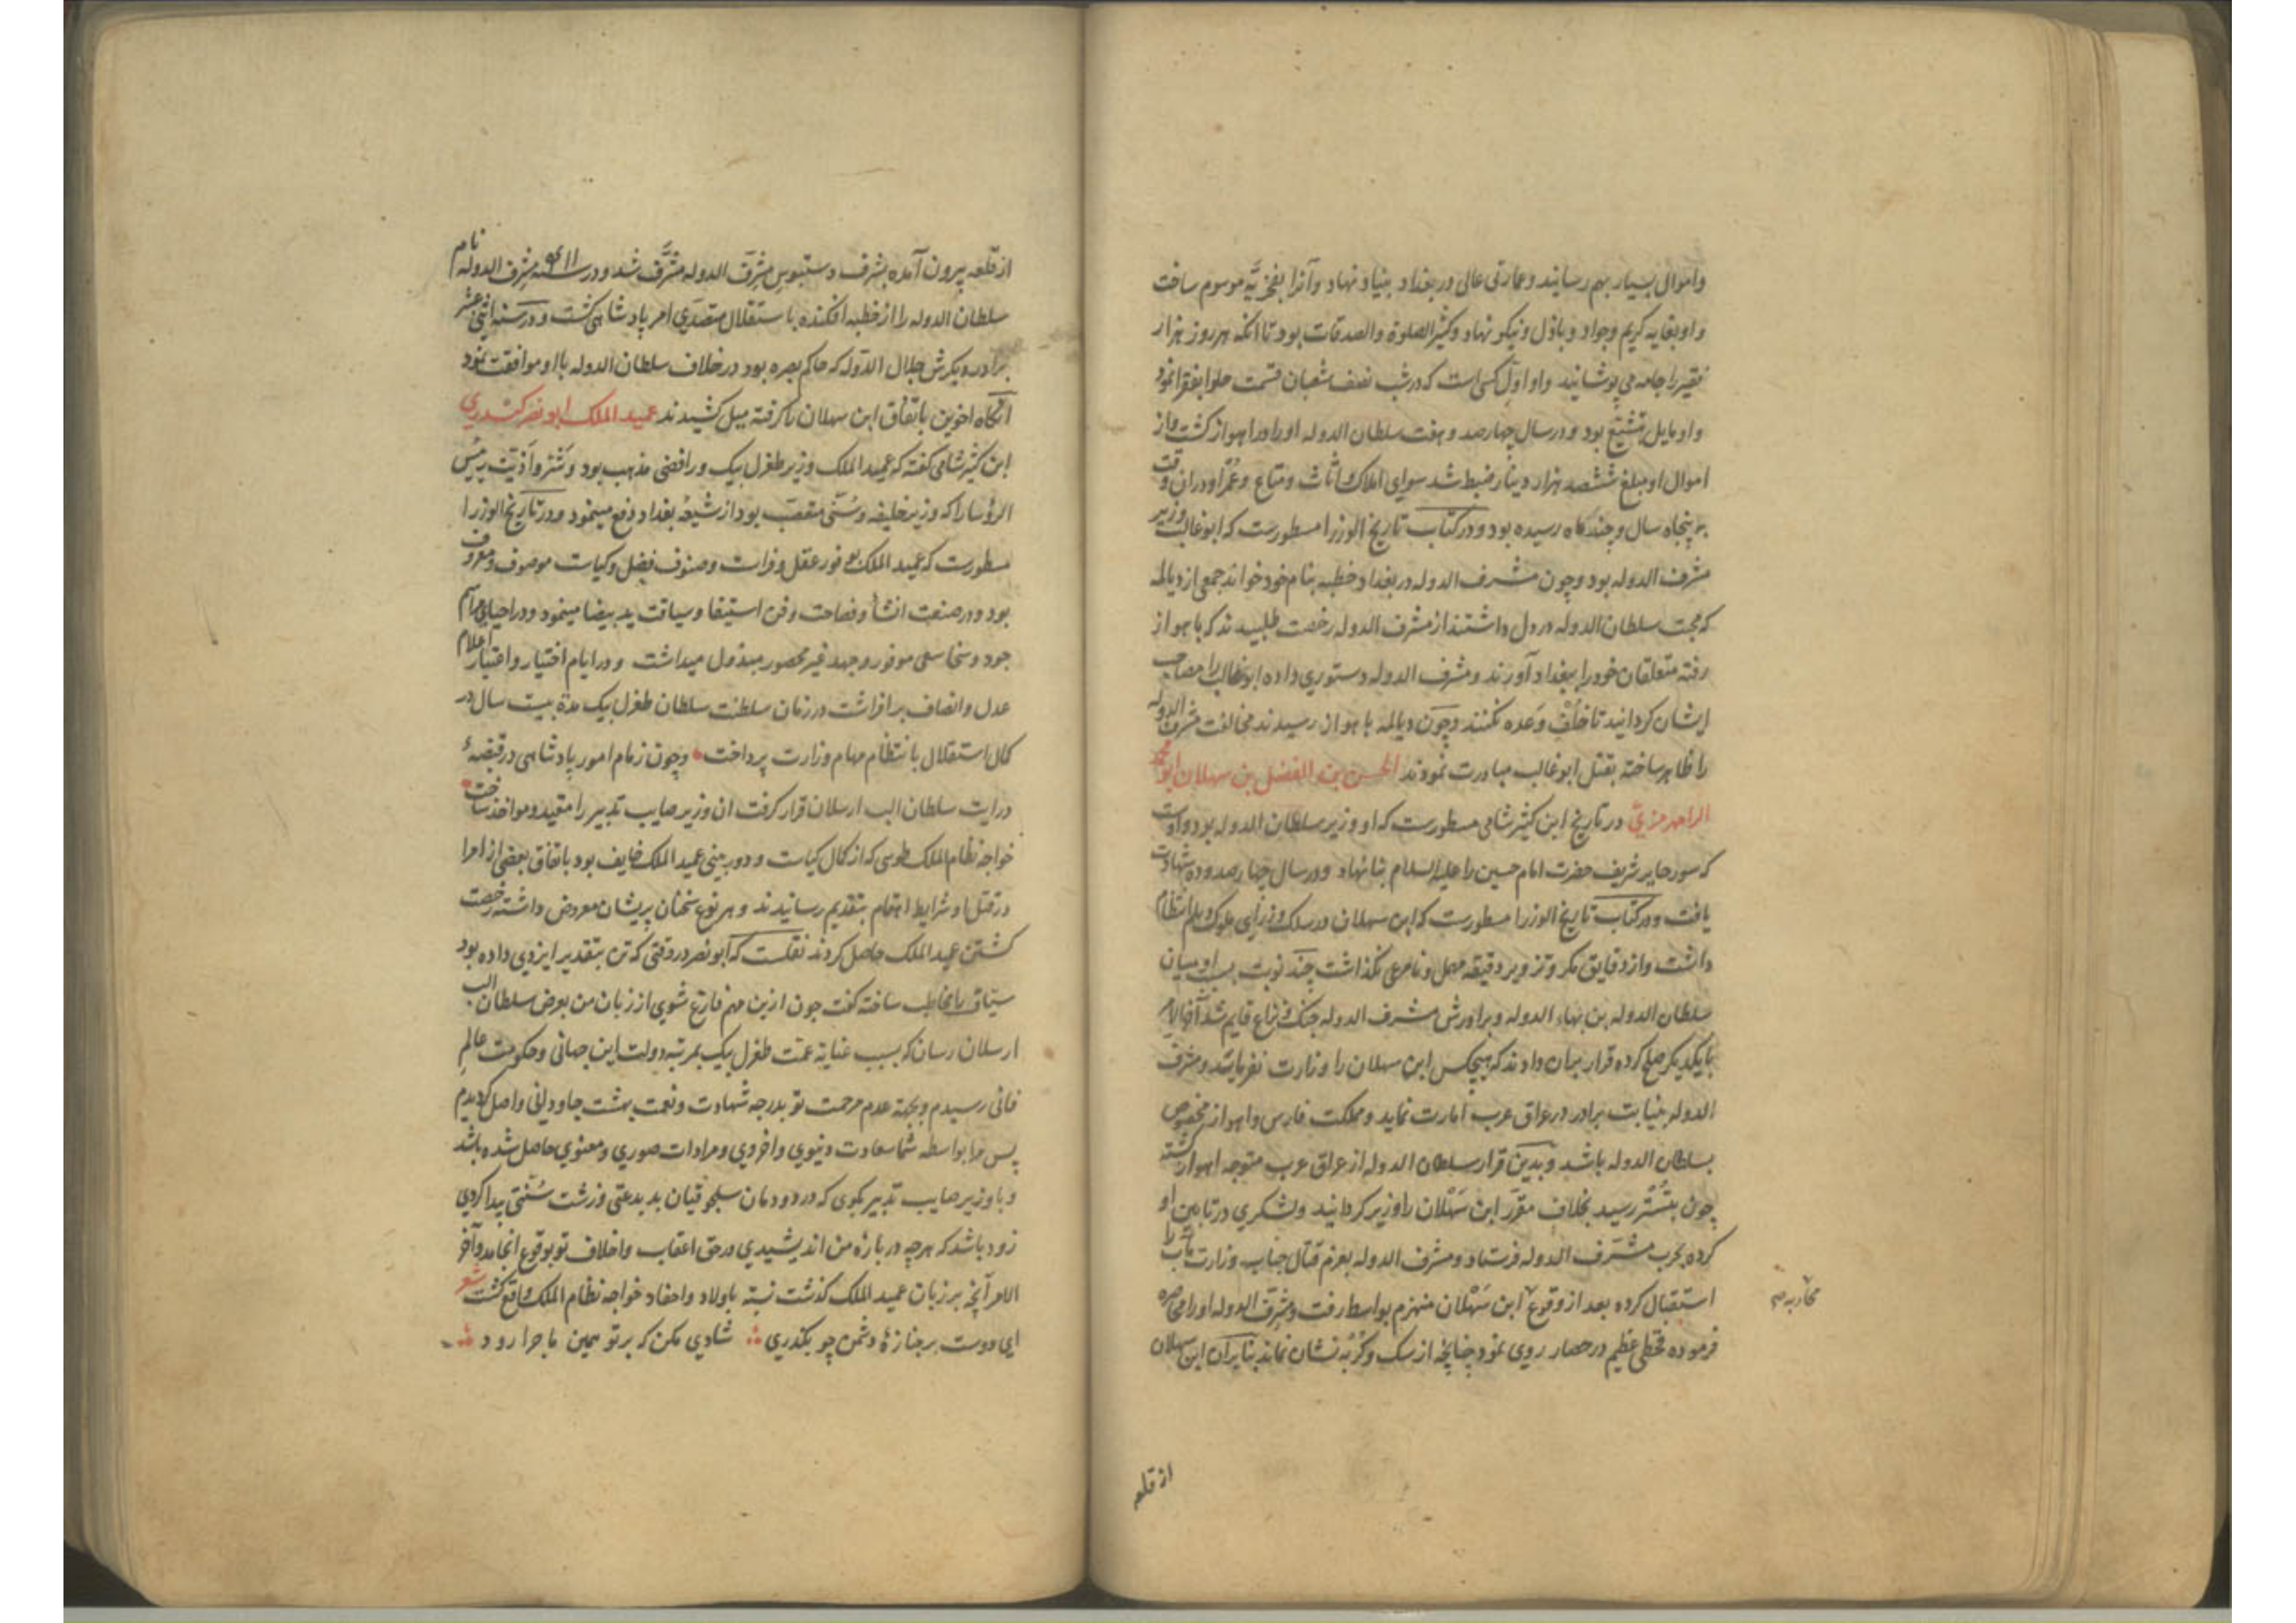 واموال بسیار بهم رسانید وعمارتی عالی در بغداد بنیاد نهاد وآنرا بفخریه موسوم ساخت
واو بغایه کریم وجواد وباذل ونیکو نهاد وکثیر الصلوة والصدقات بود تا انکه هر روز هزار
فقیر را جامه می پوشانید واو اول کسی است که در شب نصف شعبان قسمت حلوا بفقرا نمود
واو مایل بتشیع بود ودر سال چهارصد وهفت سلطان الدوله او را در اهواز کشت واز
اموال او مبلغ ششصد هزار دینار ضبط شد سوای املاک واثاث ومتاع وعمر او در ان وقت
به پنجاه سال وچند کاه رسیده بود ودر کتاب تاریخ الوزرا مسطورست که ابو غالب وزیر
مشرف الدوله بود وچون مشرف الدوله در بغداد خطبه بنام خود خواند جمعی از دیالمه
که محبت سلطان الدوله در دل داشتند از مشرف الدوله رخصت طلبیدند که باهواز
رفته متعلقان خود را ببغداد آورند ومشرف الدوله دستوری داده ابو غالب را مصاحب
ایشان کردانید تا خلف وعده نکنند وچون دیالمه باهواز رسیدند مخالفت مشرف الدوله
را ظاهر ساخته بقتل ابو غالب مبادرت نمودند الحسن بن الفضل بن سهلان ابو محمد
الرامهرمزی در تاریخ ابن کثیر شامی مسطورست که او وزیر سلطان الدوله بود واوست
که سور حایر شریف حضرت امام حسین را علیه السلام بنا نهاد ودر سال چهارصد وده شهادت
یافت ودر کتاب تاریخ الوزرا مسطورست که ابن سهلان در سلک وزرای ملوک دیلم انتظام
داشت واز دقایق مکر وتزویر دقیقه مهمل ونامرعی نکذاشت چند نوبت بسبب او میان
سلطان الدوله بن بهاء الدوله وبرادرش مشرف الدوله جنک ونزاع قایم شد آخر الامر
با یکدیکر صلح کرده قرار بران دادند که هیچکس ابن سهلان را وزارت نفرماید ومشرف
الدوله بنیابت برادر در عراق عرب امارت نماید ومملکت فارس واهواز مخصوص
بسلطان الدوله باشد وبدین قرار سلطان الدوله از عراق عرب متوجه اهواز کشته
چون بتستر رسید بخلاف مقرر ابن سهلان را وزیر کردانید ولشکری در تابین او
کرده بحرب مشرف الدوله فرستاد ومشرف الدوله بعزم قتال جناب وزارت مآب را
استقبال کرده بعد از وقوع ابن سهلان منهزم بواسط رفت ومشرف الدوله او را محاصره
محاربه صح
فرموده قحطی عظیم در حصار روی نمود چنانچه از سک وکربه نشان نماند بنابران ابن سهلان
از قلعه
از قلعه بیرون آمده بشرف دستبوس مشرف الدوله مشرف شد ودر سنه ۴۱۱ مشرف الدوله نام
سلطان الدوله را از خطبه افکنده باستقلال متصدی امر پادشاهی کشت ودر سنه اثنی عشر
برادر دیکرش جلال الدوله که حاکم بصره بود در خلاف سلطان الدوله با او موافقت نمود
آنکاه اخوین باتفاق ابن سهلان را کرفته میل کشیدند عمید الملک ابو نصر کندری
ابن کثیر شامی کفته که عمید الملک وزیر طغرل بیک ورافضی مذهب بود وشر واذیت رییس
الرؤسا را که وزیر خلیفه وسنی متعصب بود از شیعه بغداد دفع مینمود ودر تاریخ الوزرا
مسطورست که عمید الملک بوفور عقل وفراست وصنوف فضل وکیاست موصوف ومعروف
بود ودر صنعت انشأ وفصاحت وفن استیفا وسیاقت ید بیضا مینمود ودر احیای مراسم
جود وسخا سعی موفور وجهد غیر محصور مبذول میداشت ودر ایام اختیار واعتبار اعلام
عدل وانصاف برافراشت در زمان سلطنت سلطان طغرل بیک مدة بیست سال در
کمال استقلال بانتظام مهام وزارت پرداخت وچون زمام امور پادشاهی در قبضهٔ
درایت سلطان الب ارسلان قرار کرفت ان وزیر صایب تدبیر را مقید ومواخذ ساخت
خواجه نظام الملک طوسی که از کمال کیاست ودور بینی عمید الملک خایف بود باتفاق بعضی از امرا
در قتل او شرایط اهتمام بتقدیم رسانیدند وهر نوع سخنان پریشان معروض داشته رخصت
کشتن عمید الملک حاصل کردند نقلست که ابو نصر در وقتی که تن بتقدیر ایزدی داده بود
سیاف را مخاطب ساخته کفت چون ازین مهم فارغ شوی از زبان من بعرض سلطان الب
ارسلان رسان که بسبب عنایة عمت طغرل بیک بمرتبه دولت این جهانی وحکومت عالم
فانی رسیدم وبجهة عدم مرحمت تو بدرجه شهادت ونعمت بهشت جاودانی واصل کردیدم
پس مرا بواسطه شما سعادت دنیوی واخروی ومرادات صوری ومعنوی حاصل شده باشد
وبا وزیر صایب تدبیر بکوی که در دودمان سلجوقیان بد بدعتی وزشت سنتی پیدا کردی
زود باشد که هرچه در بارهٔ من اندیشیدی در حق اعقاب واخلاف تو بوقوع انجامد وآخر
الامر آنچه بر زبان عمید الملک کذشت نسبة باولاد واحفاد خواجه نظام الملک واقع کشت شعر
ای دوست بر جنازهٔ دشمن چو بکذری شادی مکن که بر تو همین ماجرا رود